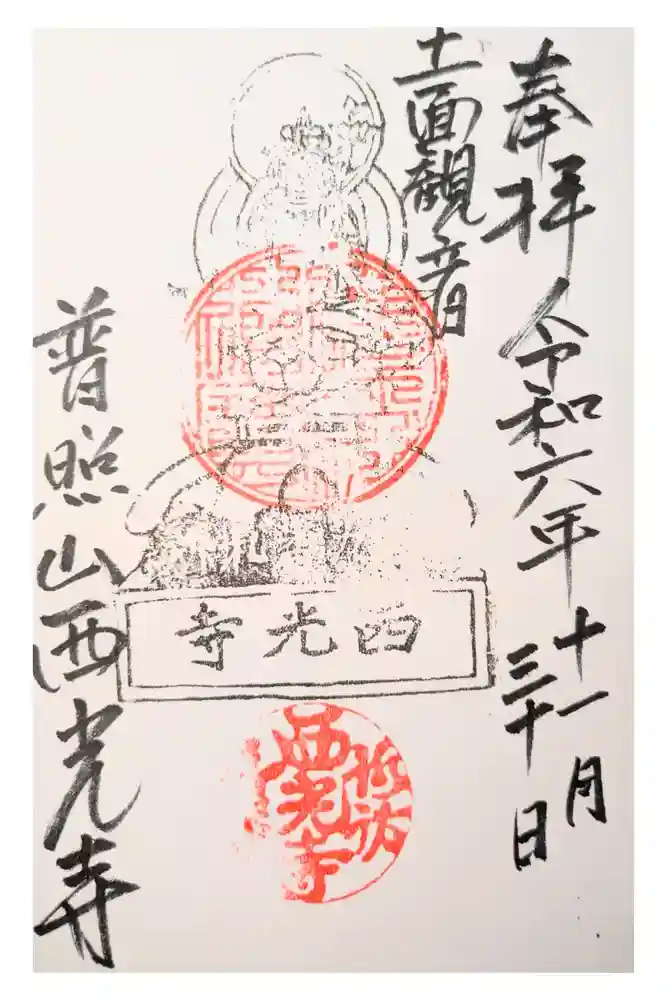 奉拝 令和六年 十一月
三十日
十一面觀音
西光寺
西光寺
普照山西光寺